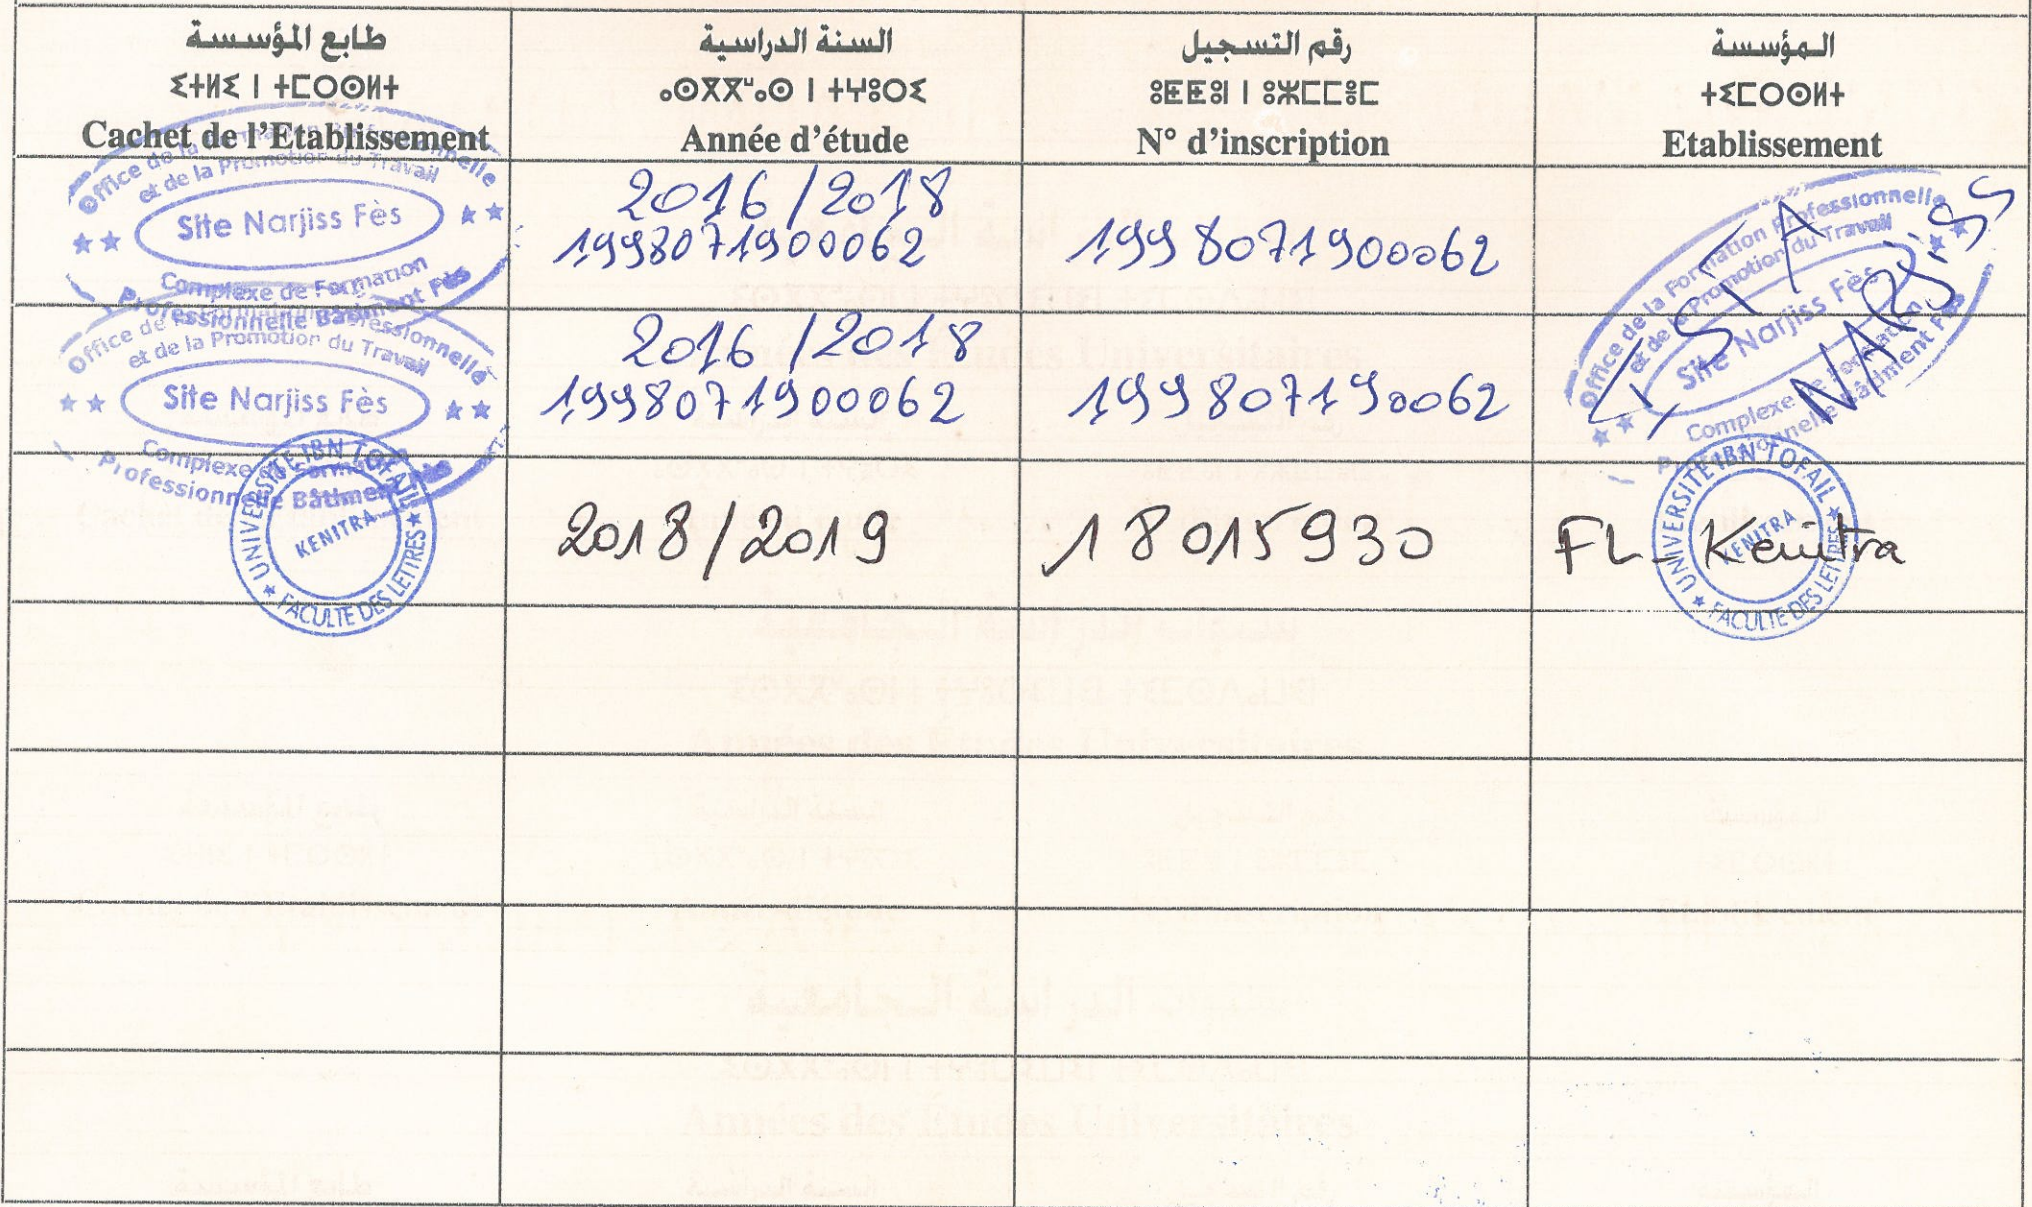 طابع المؤسسة
ⵉⵜⵍⵉ ⵏ ⵜⵎⵔⵙⵍⵜ
Cachet de l'Etablissement
السنة الدراسية
ⴰⵙⴳⴳⵯⴰⵙ ⵏ ⵜⵖⵓⵔⵉ
Année d'étude
رقم التسجيل
ⵓⵟⵟⵓⵏ ⵏ ⵓⵣⵎⵎⴻⵎ
N° d'inscription
المؤسسة
ⵜⵉⵎⵔⵙⵍⵜ
Etablissement
Office de la Formation Professionnelle
et de la Promotion du Travail
Site Narjiss Fès
Complexe de Formation
Professionnelle Bâtiment Fès
2016/2018
1998071900062
1998071900062
Office de la Formation Professionnelle
et de la Promotion du Travail
Site Narjiss Fès
Complexe de Formation
Professionnelle Bâtiment Fès
ISTA
NARJiSS
Office de la Formation Professionnelle
et de la Promotion du Travail
Site Narjiss Fès
Complexe de Formation
Professionnelle Bâtiment Fès
2016/2018
1998071900062
19980719 0062
UNIVERSITE IBN TOFAIL
KENITRA
FACULTE DES LETTRES
2018/2019
18015930
FL_Kenitra
UNIVERSITE IBN TOFAIL
KENITRA
FACULTE DES LETTRES